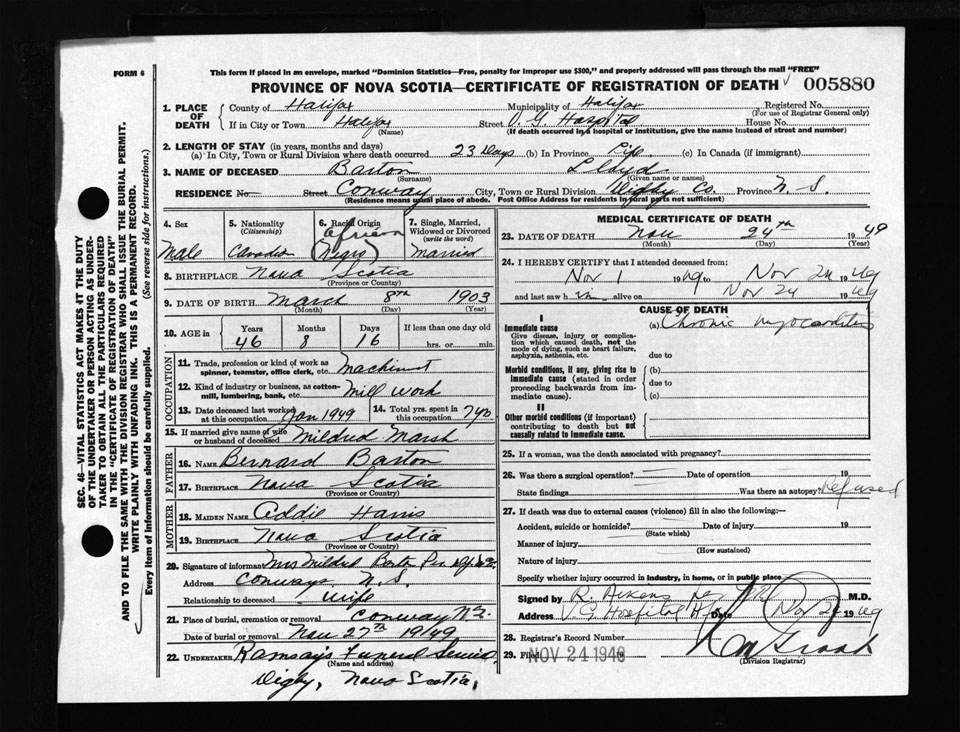 FORM 6
This form if placed in an envelope, marked "Dominion Statistics—Free, penalty for improper use $300," and properly addressed will pass through the mail "FREE"
PROVINCE OF NOVA SCOTIA—CERTIFICATE OF REGISTRATION OF DEATH
005880
SEC. 46—VITAL STATISTICS ACT MAKES IT THE DUTY
OF THE UNDERTAKER OR PERSON ACTING AS UNDER-
TAKER TO OBTAIN ALL THE PARTICULARS REQUIRED
IN THE "CERTIFICATE OF REGISTRATION OF DEATH"
AND TO FILE THE SAME WITH THE DIVISION REGISTRAR WHO SHALL ISSUE THE BURIAL PERMIT.
WRITE PLAINLY WITH UNFADING INK. THIS IS A PERMANENT RECORD.
Every item of information should be carefully supplied. (See reverse side for instructions.)
1. PLACE OF DEATH
County of Halifax Municipality of Halifax Registered No.
(For use of Registrar General only)
If in City or Town Halifax Street V. G. Hospital House No.
(Name) (If death occurred in a hospital or institution, give the name instead of street and number)
2. LENGTH OF STAY (in years, months and days)
(a) In City, Town or Rural Division where death occurred 23 Days (b) In Province Life (c) In Canada (if immigrant)
3. NAME OF DECEASED Barton Lloyd
(Surname) (Given name or names)
RESIDENCE No. Street Conway City, Town or Rural Division Digby Co. Province N. S.
(Residence means usual place of abode. Post Office Address for residents in rural parts not sufficient)
4. Sex
Male
5. Nationality
(Citizenship)
Canadian
6. Racial Origin
African
(Negro)
7. Single, Married,
Widowed or Divorced
(write the word)
Married
8. BIRTHPLACE Nova Scotia
(Province or Country)
9. DATE OF BIRTH March 8th 1903
(Month) (Day) (Year)
10. AGE in
Years Months Days If less than one day old
46 8 16 hrs. or min.
OCCUPATION
11. Trade, profession or kind of work as
spinner, teamster, office clerk, etc. Machinist
12. Kind of industry or business, as cotton-
mill, lumbering, bank, etc. Mill work
13. Date deceased last worked
at this occupation Jan 1949
14. Total yrs. spent in
this occupation
15. If married give name of wife
or husband of deceased Mildred Marsh
FATHER
16. NAME Bernard Barton
17. BIRTHPLACE Nova Scotia
(Province or Country)
MOTHER
18. MAIDEN NAME Addie Harris
19. BIRTHPLACE Nova Scotia
(Province or Country)
20. Signature of informant Mrs Mildred
Address Conway, N. S.
Relationship to deceased wife
21. Place of burial, cremation or removal Conway N.S.
Date of burial or removal Nov 27th 1949
22. UNDERTAKER Ramsay's Funeral Service,
(Name and address)
Digby, Nova Scotia,
MEDICAL CERTIFICATE OF DEATH
23. DATE OF DEATH Nov 24th 1949
(Month) (Day) (Year)
24. I HEREBY CERTIFY that I attended deceased from:
Nov 1 1949 to Nov 24 1949
and last saw him alive on Nov 24 1949
CAUSE OF DEATH
I
Immediate cause
Give disease, injury or complica-
tion which caused death, not the
mode of dying, such as heart failure,
asphyxia, asthenia, etc.
(a) Chronic myocarditis
due to
Morbid conditions, if any, giving rise to
immediate cause (stated in order
proceeding backwards from im-
mediate cause).
(b)
due to
(c)
II
Other morbid conditions (if important)
contributing to death but not
causally related to immediate cause.
25. If a woman, was the death associated with pregnancy?
26. Was there a surgical operation? Date of operation 19
State findings Was there an autopsy? Refused
27. If death was due to external causes (violence) fill in also the following:—
Accident, suicide or homicide? Date of injury 19
(State which)
Manner of injury
(How sustained)
Nature of injury
Specify whether injury occurred in industry, in home, or in public place
Signed by R. Aikens M.D.
Address V G Hospital Date Nov 24 1949
28. Registrar's Record Number
29. Filed NOV 24 1949
(Division Registrar)